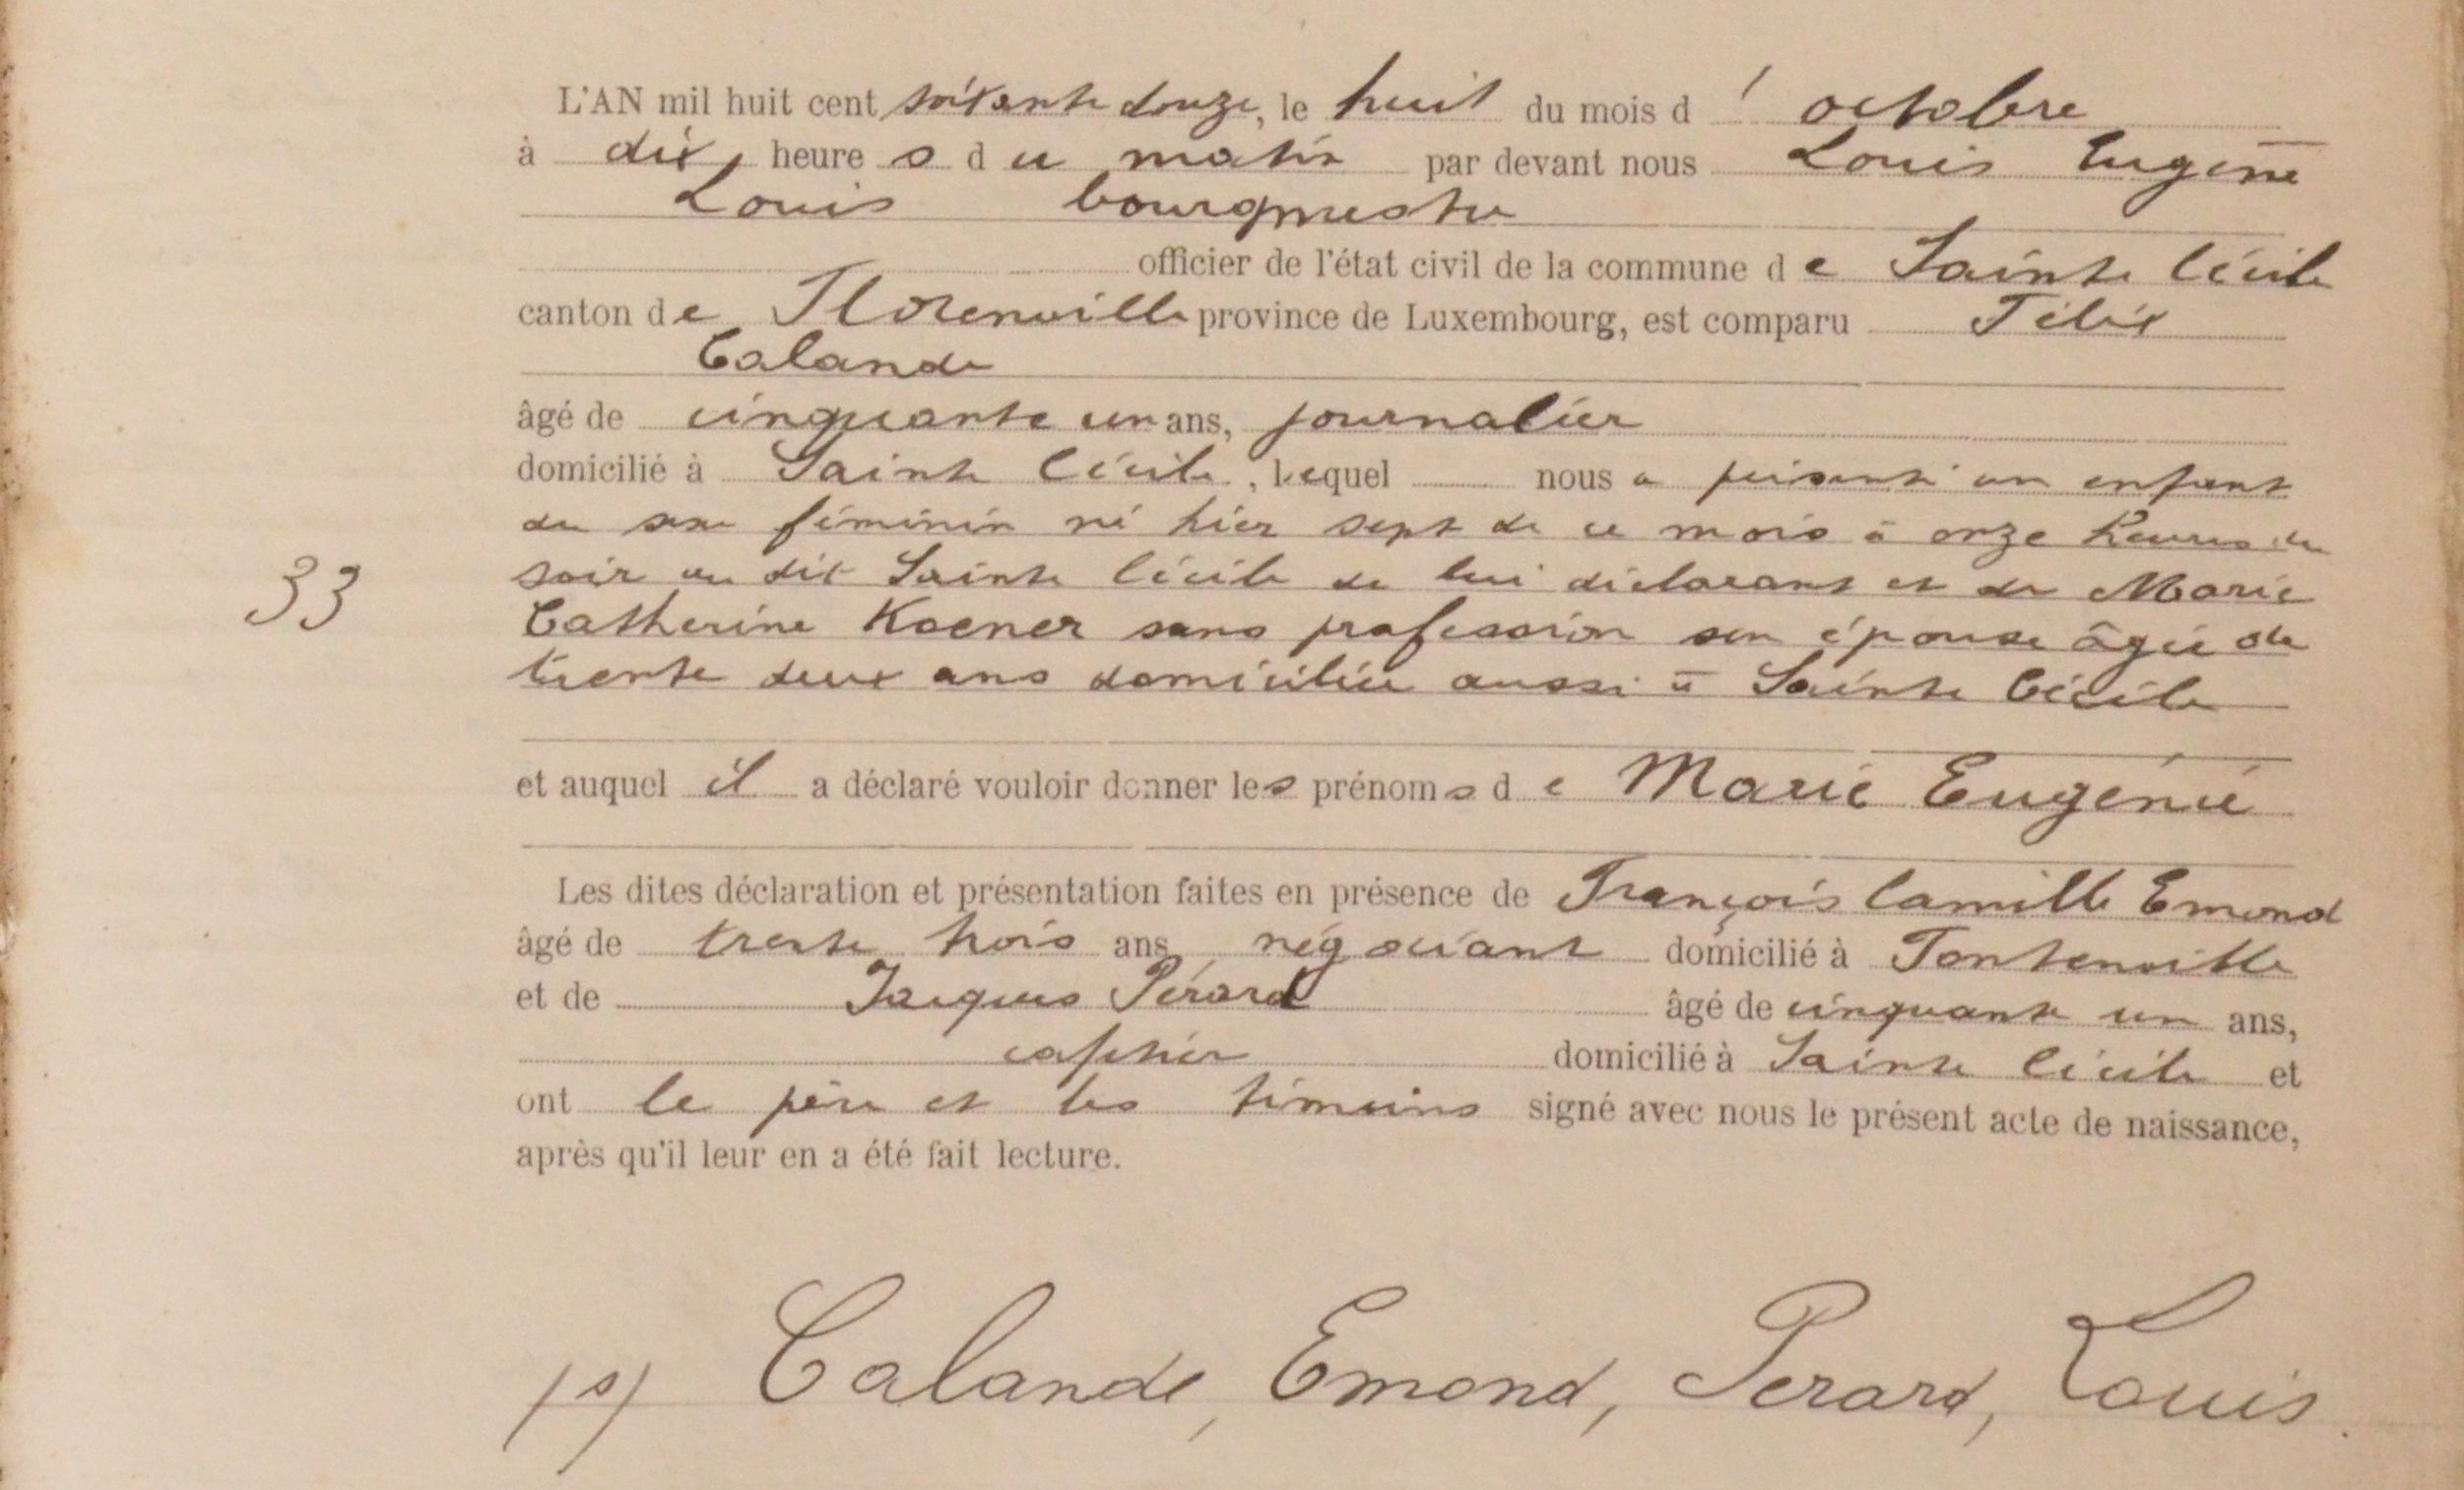 L'AN mil huit cent soixante douze, le huit du mois d' octobre
à dix heures du matin par devant nous Louis Eugène
Louis bourgmestre
officier de l'état civil de la commune de Sainte Cécile
canton de Florenville province de Luxembourg, est comparu Félix
Calande
âgé de cinquante un ans, journalier
domicilié à Sainte Cécile, lequel nous a présenté un enfant
du sexe féminin né hier sept de ce mois à onze heures du
soir au dit Sainte Cécile de lui déclarant et de Marie
33
Catherine Koener sans profession son épouse âgée de
trente deux ans domiciliée aussi à Sainte Cécile
et auquel il a déclaré vouloir donner les prénoms de Marie Eugénie
Les dites déclaration et présentation faites en présence de François Camille Emond
âgé de trente trois ans, négociant domicilié à Fontenoille
et de Jacques Pérard âgé de cinquante un ans,
domicilié à Sainte Cécile et
ont le père et les témoins signé avec nous le présent acte de naissance,
après qu'il leur en a été fait lecture.
(s) Calande, Emond, Perard, Louis.